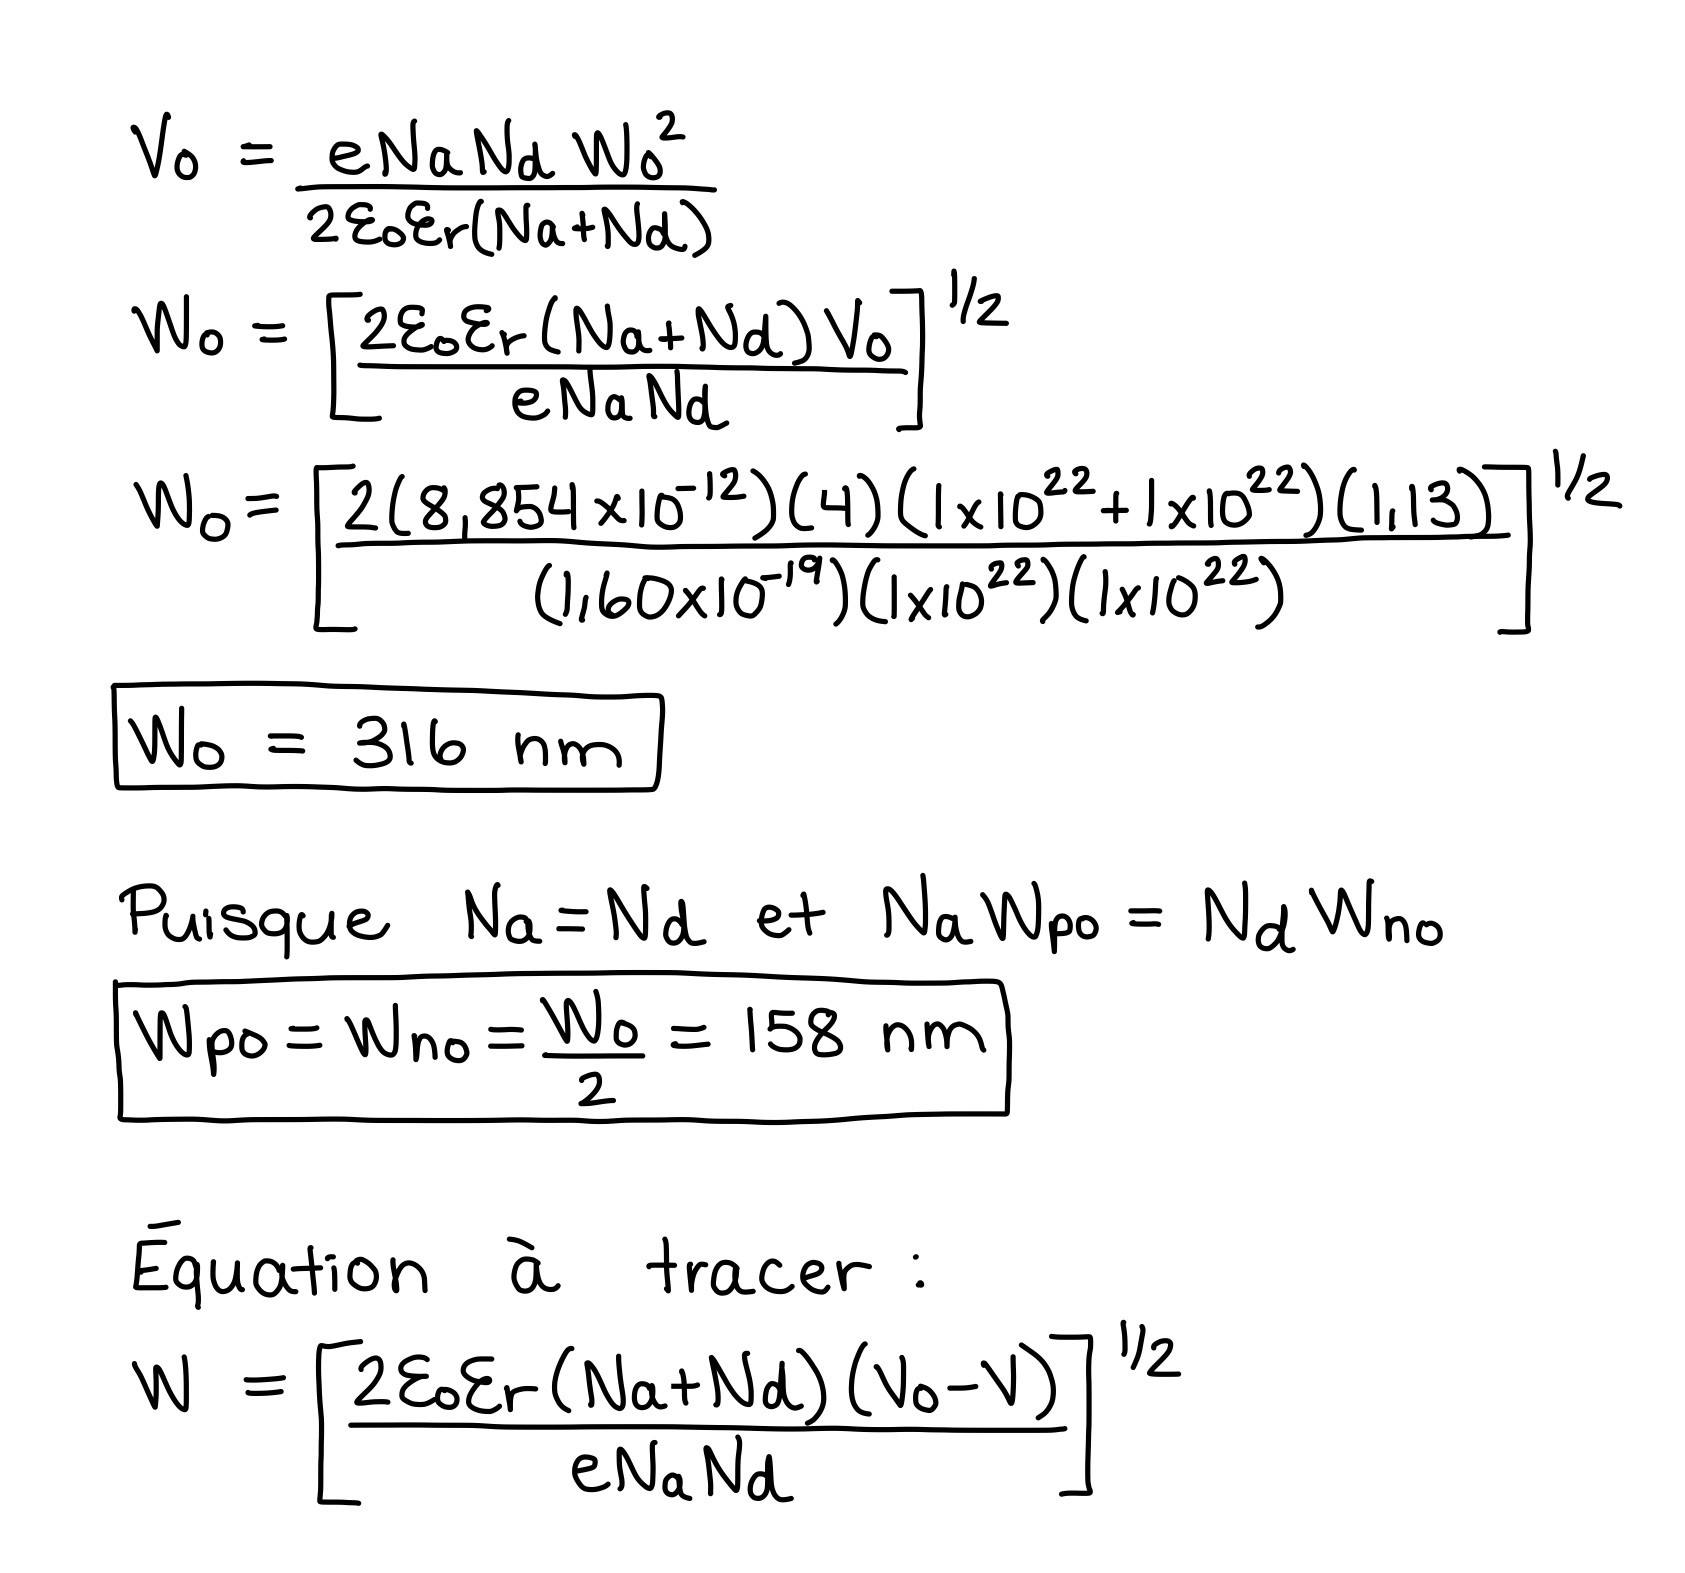 Vo = eNaNdWo² / 2εoεr(Na+Nd)
Wo = [2εoεr(Na+Nd)Vo / eNaNd]^1/2
Wo = [2(8,854×10⁻¹²)(4)(1×10²²+1×10²²)(1,13) / (1,60×10⁻¹⁹)(1×10²²)(1×10²²)]^1/2
Wo = 316 nm
Puisque Na=Nd et NaWpo = NdWno
Wpo = Wno = Wo/2 = 158 nm
Équation à tracer :
W = [2εoεr(Na+Nd)(Vo-V) / eNaNd]^1/2